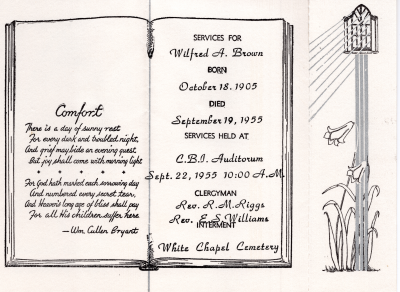 Comfort
There is a day of sunny rest
For every dark and troubled night,
And grief may bide an evening guest
But joy shall come with morning light
For God hath marked each sorrowing day
And numbered every secret tear,
And Heaven's long age of bliss shall pay
For all His children suffer here
—Wm. Cullen Bryant
SERVICES FOR
Wilfred A. Brown
BORN
October 18, 1905
DIED
September 19, 1955
SERVICES HELD AT
C.B.I. Auditorium
Sept. 22, 1955 10:00 A.M.
CLERGYMAN
Rev. R.M. Riggs
Rev. E.S. Williams
INTERMENT
White Chapel Cemetery